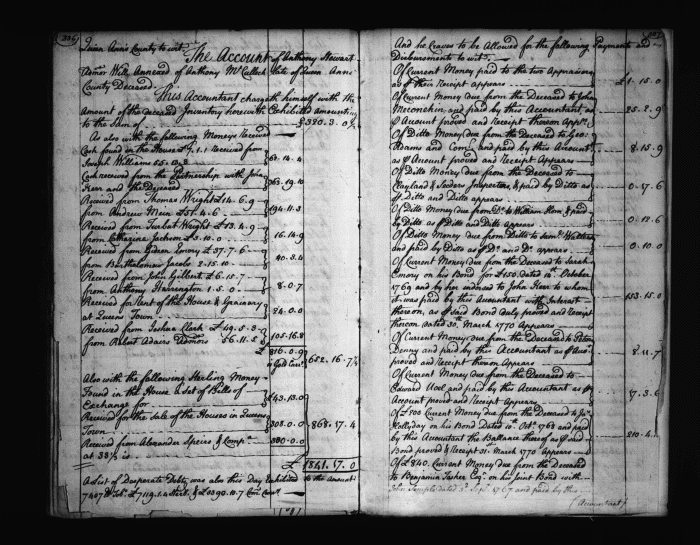 336
Queen Anns County to wit
The Account of Anthony Stewart
Admor Will Annexed of Anthony McCulloch late of Queen Anns
County Deceased
This Accountant chargeth himself with the
amount of the deceased Inventory herewith Exhibited amounting
to the Sum of £ 380.3.0½
As also with the following Moneys Received
Cash found in the House £7.1.1 Received from
Joseph Williams 55.13.3 62.14.4
Cash received from the Partnership with John
Kerr and the Deceased 363.19.10
Received from Thomas Wright £14.6.9
from Andrew Meir £51.4.6 194.11.3
Received from Turbut Wright £13.4.9
from Catharine Jackson £3.10.0 16.14.9
Received from Gideon 37.7.6
from Bartholomew Jacobs 2.15.10 40.3.4
Received from John Gilbert £6.15.7
from Anthony Harrington 1.5.0 8.0.7
Received for Rent of the House & Grainary
at Queens Town 24.0.0
Received from Joshua Clark £49.5.3
from Robert Adairs Admors 56.11.5 105.16.8
£ 816.0.9
652.16.7½
Also with the following Sterling Money
Found in the House a Set of Bills of
Exchange for £43.13.0
Received for the Sale of the Houses in Queens
Town 308.0.0
Received from Alexander Speirs & Compa
at 33⅓ is 300.0.0
868.17.4
£ 1841.17.0
A List of Desperate Debts was also this Day Exhibited to the Amount
7407 lb Tobo. £7119.1.4 Sterl. & £3390.10.7 Curr
337
And he Craves to be Allowed for the following Payments and
Disbursements to wit
Of Current Money paid to the two Appraisers
as their Receipt appears £1.15.0
Of Current Money due from the Deceased to John
Meconekin and paid by this Accountant as
Account proved and Receipt thereon Appears 25.2.9
Of Ditto Money due from the Deceased to Geo:
Adams and Com. and paid by this Accountant
as Account proved and Receipt Appears 8.15.9
Of Ditto Money due from the Deceased to
Clayland & Seders Inspectors & paid by Ditto as
Ditto and Ditto appears 0.17.6
Of Ditto Money due from Do. to William Horn & paid
by Ditto as Ditto and Ditto Appears 0.12.6
Of Ditto Money due from Ditto to
and paid by Ditto as Do. and Do. appears 0.10.0
Of Current Money due from the Deceased to Sarah
Emory on his Bond for £150 dated October
1769 and by her assigned to John Kerr to whom
it was paid by this Accountant with Interest
thereon, as Said Bond duly proved and Receipt
thereon dated 30th. March 1770 Appears 153.15.0
Of Current Money due from the Deceased to Peter
Denny and paid by this Accountant as Acct.
proved and Receipt thereon Appears 8.11.7
Of Current Money due from the Deceased to
Edward Noel and paid by this Accountant as
Account proved and Receipt Appears 17.3.6
Of £700 Current Money due from the Deceased to Jas.
Hollyday on his Bond Dated Octr. 1768 and paid
by this Accountant the Ballance thereof as said
Bond proved & Receipt 31st. March 1770 Appears 210.4
Of £840. Current Money due from the Deceased
to Benjamin Tasker Esqr. on his Joint Bond with
John Semple dated 3d. Sept. 1767 and paid by this
(Accountant)